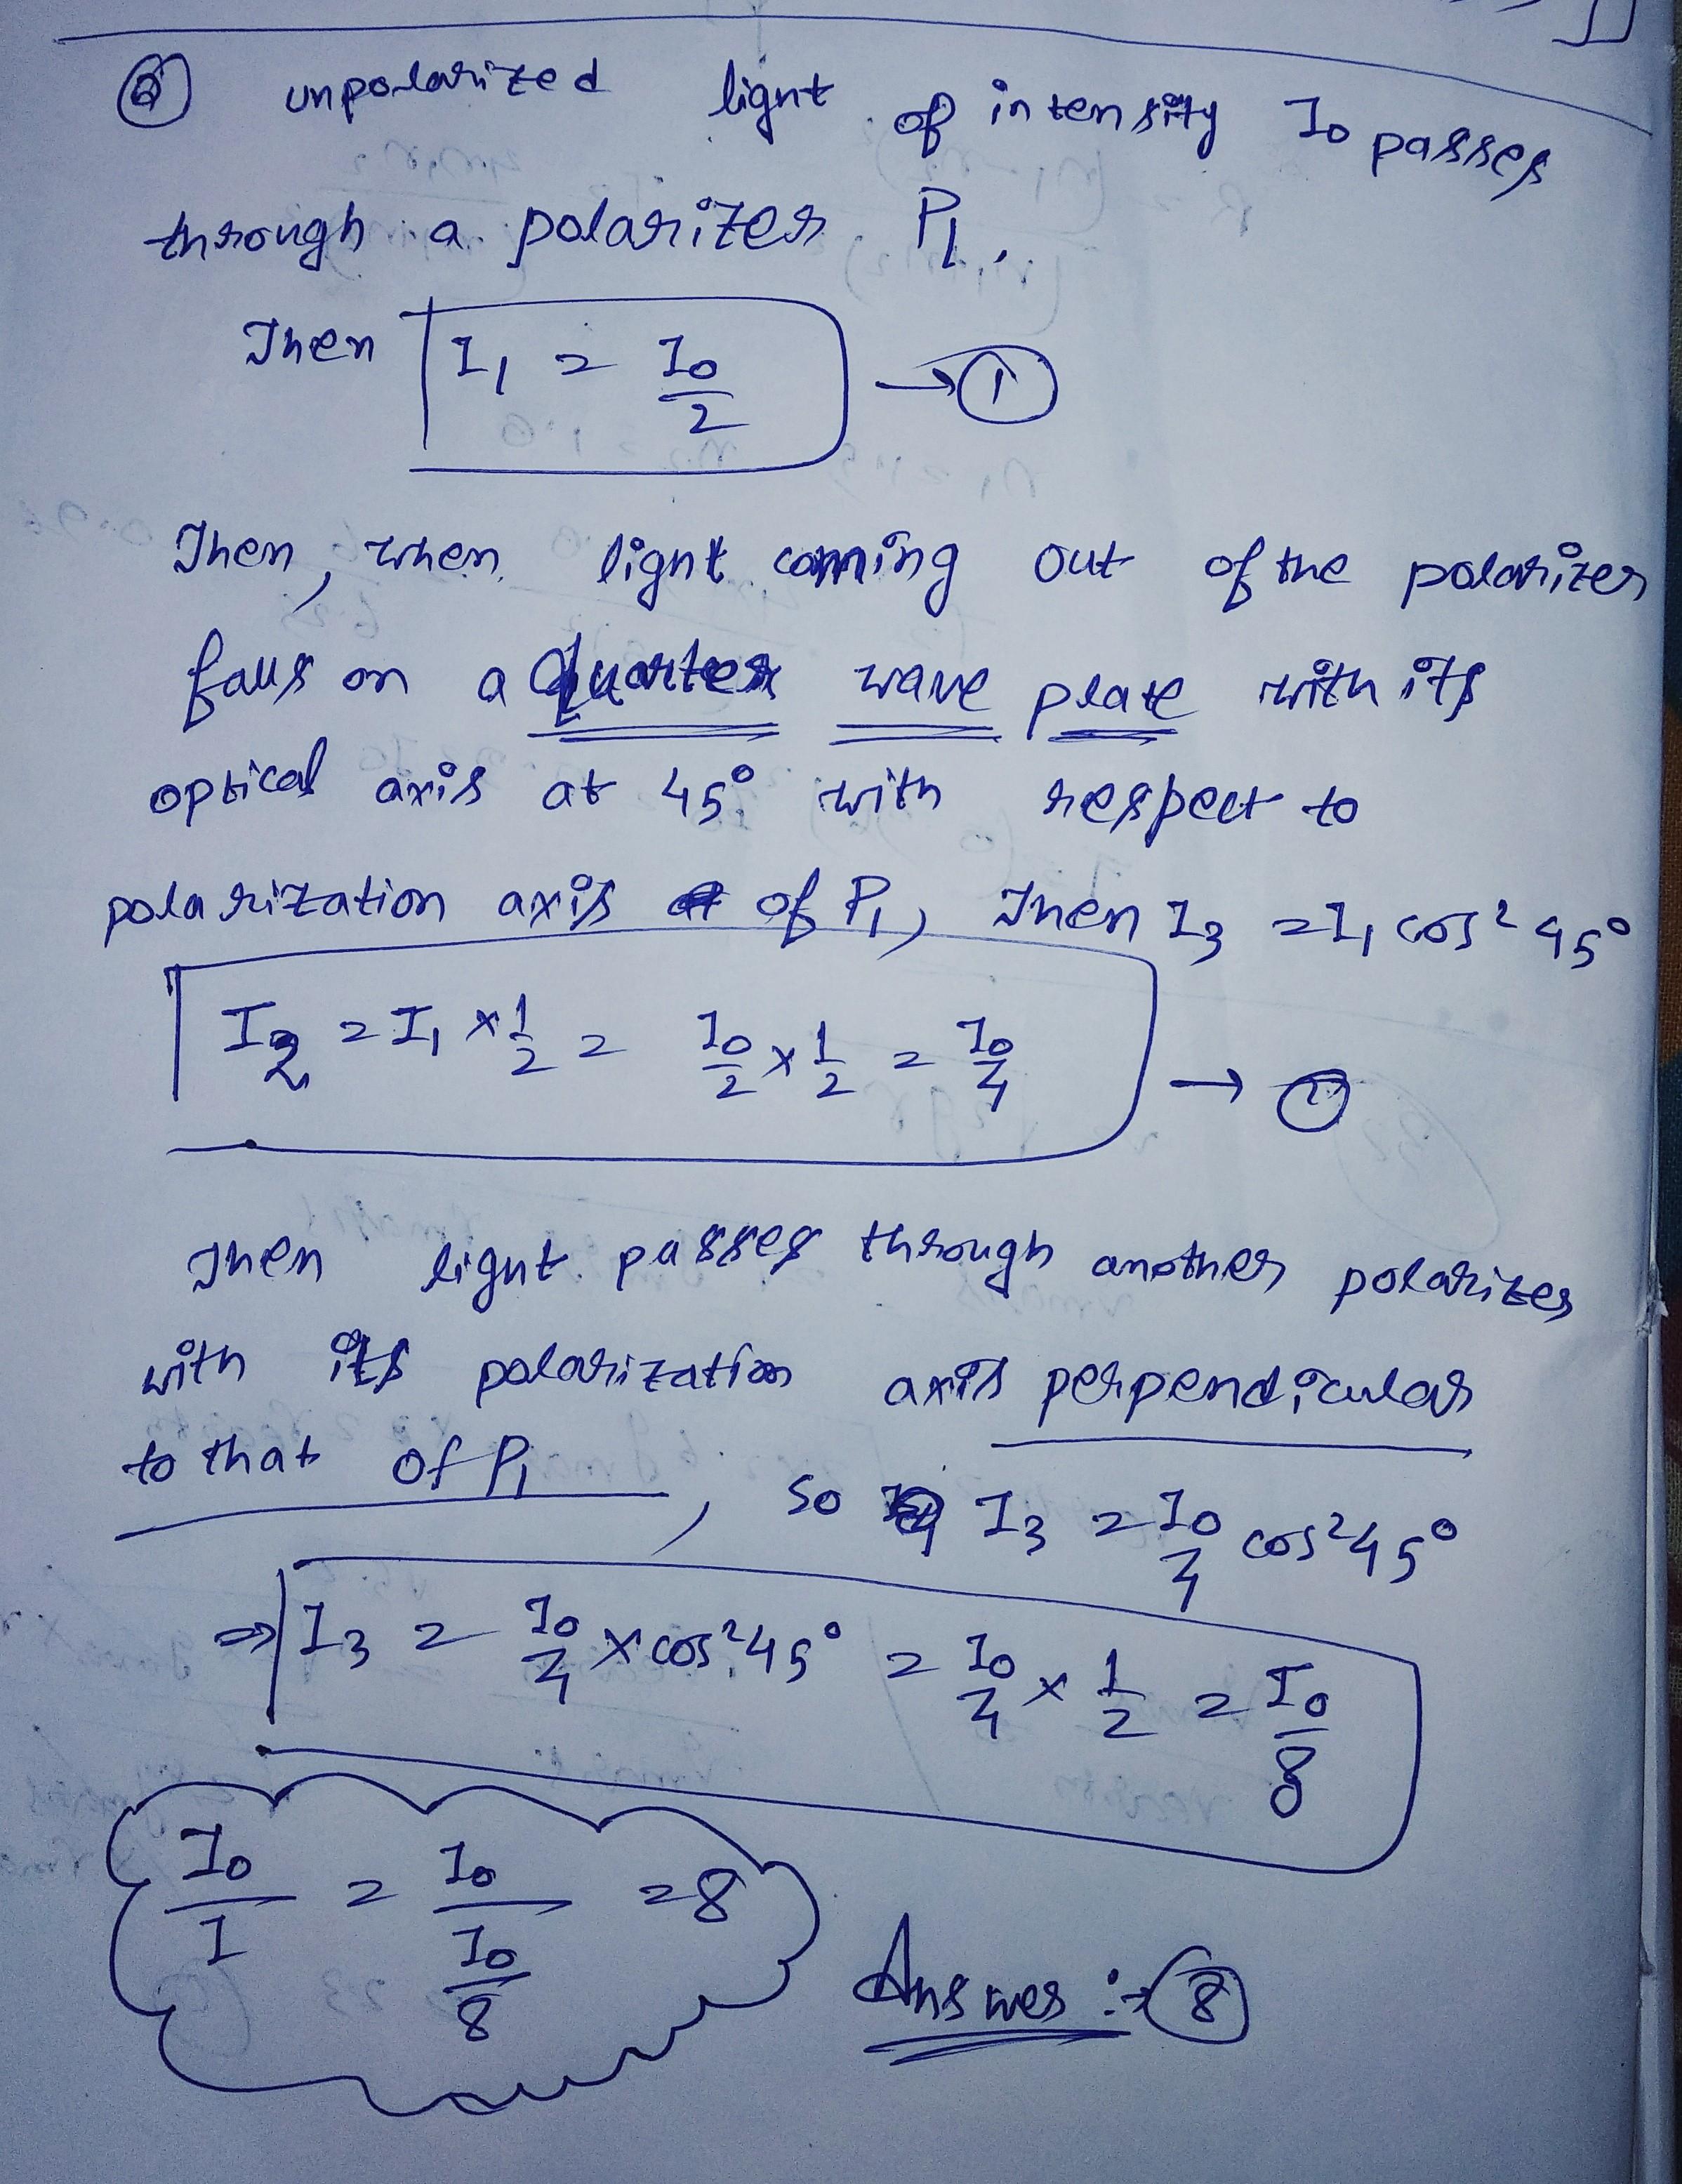 Q unpolarized light of intensity I₀ passes
through a polarizer P₁.
Then I₁ = I₀/2 → ①
Then, when light comming out of the polarizer
falls on a Quarter wave plate with its
optical axis at 45° with respect to
polarization axis of P₁, Then I₃ = I₁ cos² 45°
I₂ = I₁ × 1/2 = I₀/2 × 1/2 = I₀/4 → ②
Then light passes through another polarizer
with its polarization axis perpendicular
to that of P₁, so I₃ = I₀/4 cos² 45°
⇒ I₃ = I₀/4 × cos² 45° = I₀/4 × 1/2 = I₀/8
I₀/I = I₀/(I₀/8) = 8
Answer :- 8